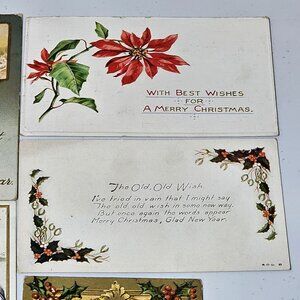 With Best Wishes
for
A Merry Christmas.
The Old, Old Wish
I've tried in vain that I might say
The old, old wish in some new way.
But once again the words appear
Merry Christmas, Glad New Year.
ar.